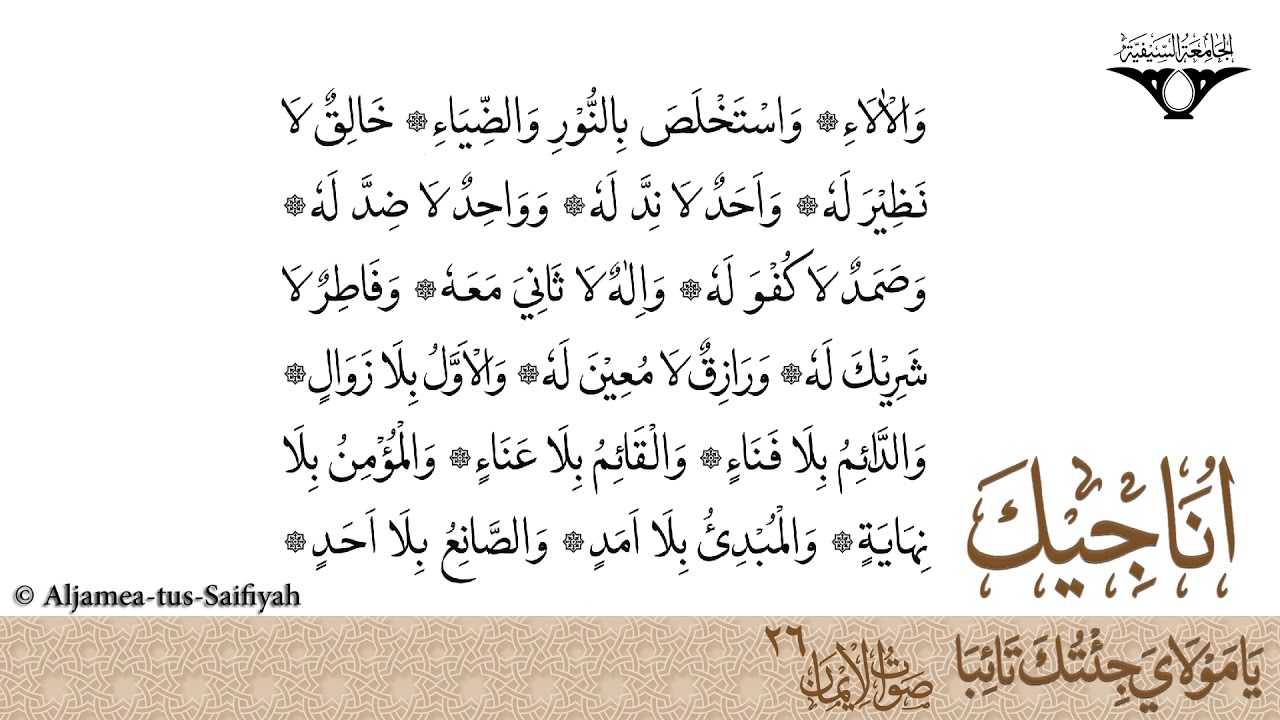 الجامعة السيفية
وَالْاٰلَاءِ ۞ وَاسْتَخْلَصَ بِالنُّوْرِ وَالضِّيَاءِ ۞ خَالِقٌ لَا
نَظِيْرَ لَهٗ ۞ وَاَحَدٌ لَا نِدَّ لَهٗ ۞ وَوَاحِدٌ لَا ضِدَّ لَهٗ ۞
وَصَمَدٌ لَا كُفْوَ لَهٗ ۞ وَاِلٰهٌ لَا ثَانِيَ مَعَهٗ ۞ وَفَاطِرٌ لَا
شَرِيْكَ لَهٗ ۞ وَرَازِقٌ لَا مُعِيْنَ لَهٗ ۞ وَالْاَوَّلُ بِلَا زَوَالٍ ۞
وَالدَّائِمُ بِلَا فَنَاءٍ ۞ وَالْقَائِمُ بِلَا عَنَاءٍ ۞ وَالْمُؤْمِنُ بِلَا
نِهَايَةٍ ۞ وَالْمُبْدِئُ بِلَا اَمَدٍ ۞ وَالصَّانِعُ بِلَا اَحَدٍ ۞
اُنَاجِيْكَ
© Aljamea-tus-Saifiyah
يَا مَوْلَايَ جِئْتُكَ تَائِبَا
صَوْتُ الْاِيْمَان ٢٦